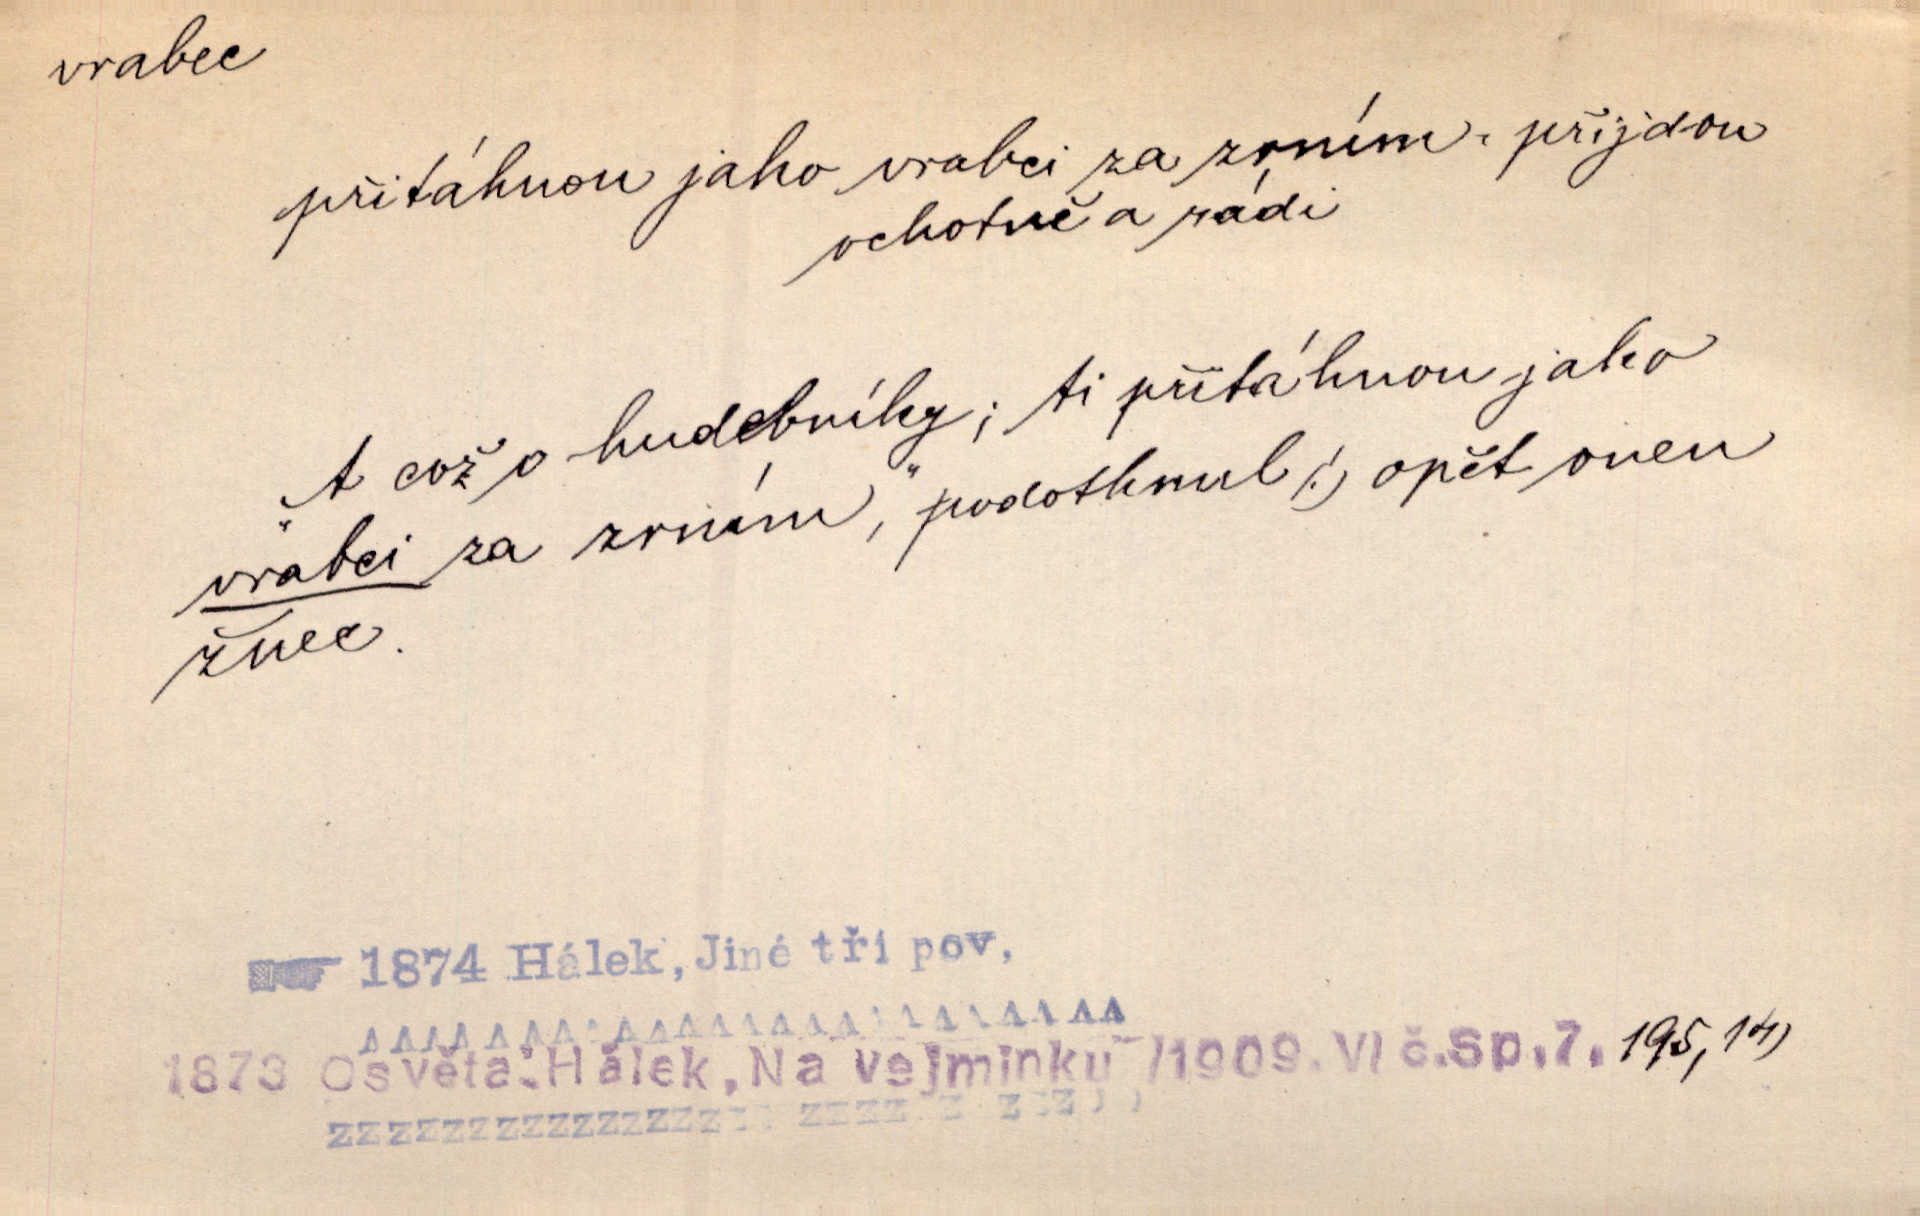 vrabec
přitáhnou jako vrabci za zrním. přijdou
ochotně a rádi
„A což o hudebníky; ti přitáhnou jako
vrabci za zrním,“ podotknul (!) opět onen
žnec.
1874 Hálek, Jiné tři pov,
1873 Osvěta: Hálek, Na vejminku /1909. Vl č. Sp. 7. 195, 14)